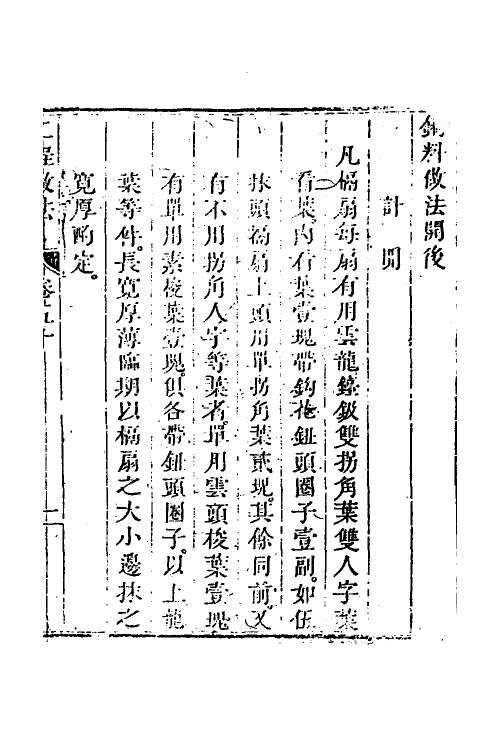 銅料做法開後
計開
凡槅扇每扇有用雲龍鍐鈒雙拐角葉雙人字葉
看葉內看葉壹塊帶鈎花鈕頭圈子壹副如伍
抹頭槅扇上頭用單拐角葉貳塊其餘同前又
有不用拐角人字等葉者單用雲頭梭葉壹塊
有單用素梭葉壹塊俱各帶鈕頭圈子以上龍
葉等件長寬厚薄臨期以槅扇之大小邊抹之
寬厚酌定
工程做法 卷五十 一